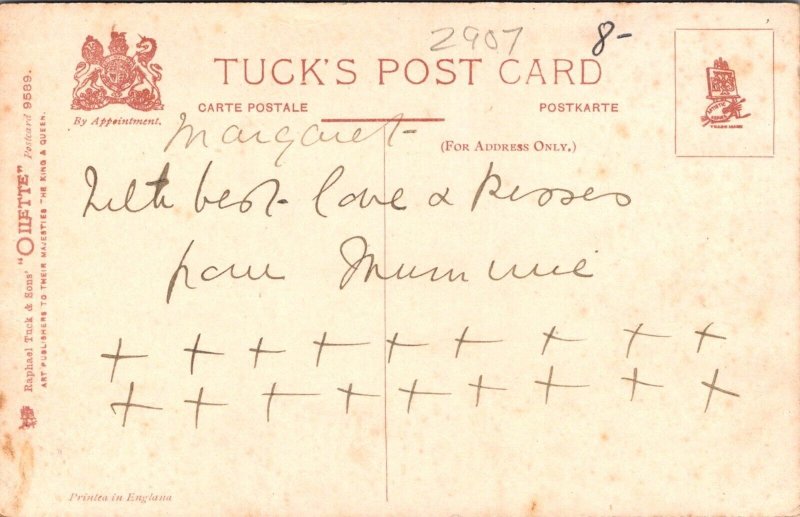 2907 8-
TUCK'S POST CARD
By Appointment.
CARTE POSTALE POSTKARTE
(FOR ADDRESS ONLY.)
Margaret
With best love & kisses
from Mummie
+ + + + + + + + +
+ + + + + + + + +
Raphael Tuck & Sons' "OILETTE" Postcard 9589.
ART PUBLISHERS TO THEIR MAJESTIES THE KING & QUEEN.
TRADE MARK
Printed in England